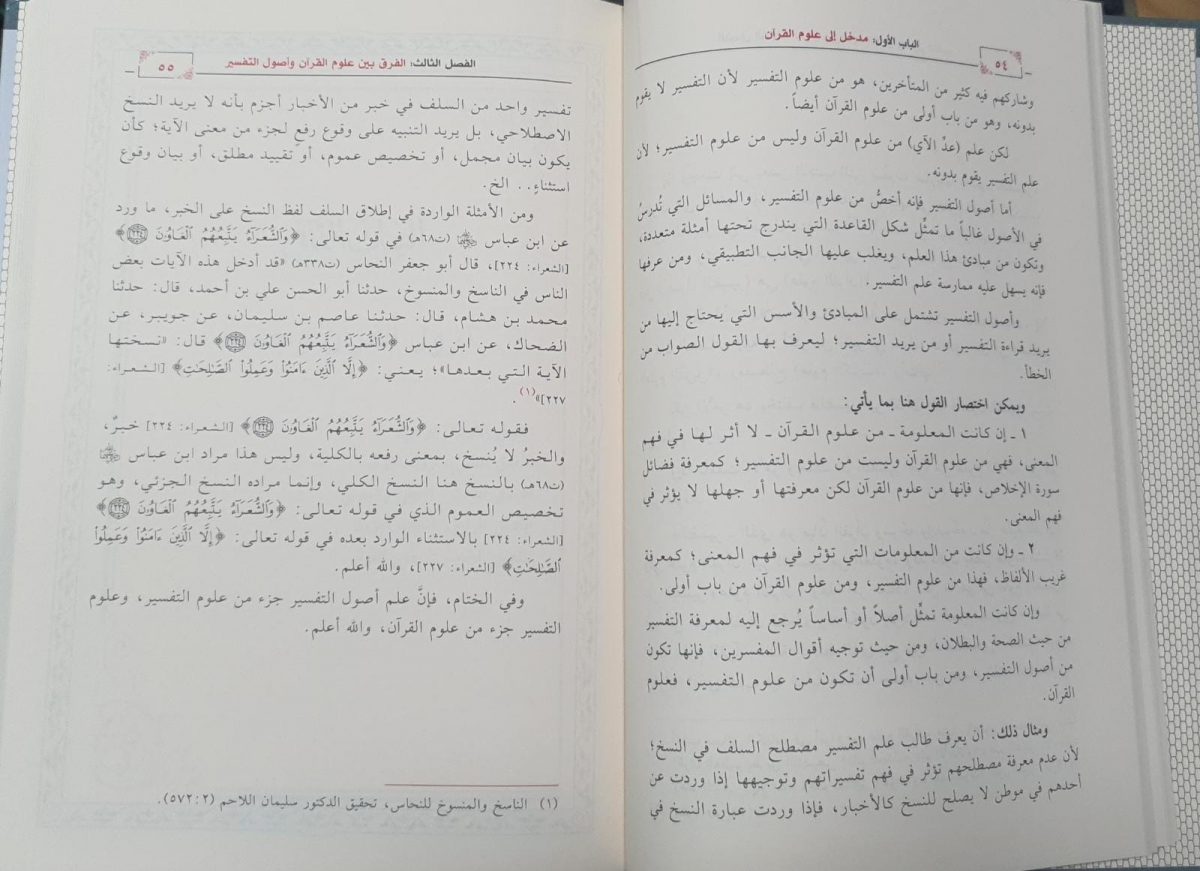 ٥٤
الباب الأول: مدخل إلى علوم القرآن
وشاركهم فيه كثير من المتأخرين، هو من علوم التفسير لأن التفسير لا يقوم
بدونه، وهو من باب أولى من علوم القرآن أيضاً.
لكن علم (عدِّ الآي) من علوم القرآن وليس من علوم التفسير؛ لأن
علم التفسير يقوم بدونه.
أما أصول التفسير فإنه أخصُّ من علوم التفسير، والمسائل التي تُدرسُ
في الأصول غالباً ما تمثِّل شكل القاعدة التي يندرج تحتها أمثلة متعددة،
وتكون من مبادئ هذا العلم، ويغلب عليها الجانب التطبيقي، ومن عرفها
فإنه يسهل عليه ممارسة علم التفسير.
وأصول التفسير تشتمل على المبادئ والأسس التي يحتاج إليها من
يريد قراءة التفسير أو من يريد التفسير؛ ليعرف بها القول الصواب من
الخطأ.
ويمكن اختصار القول هنا بما يأتي:
١ ـ إن كانت المعلومة ـ من علوم القرآن ـ لا أثر لها في فهم
المعنى، فهي من علوم القرآن وليست من علوم التفسير؛ كمعرفة فضائل
سورة الإخلاص، فإنها من علوم القرآن لكن معرفتها أو جهلها لا يؤثر في
فهم المعنى.
٢ ـ وإن كانت من المعلومات التي تؤثر في فهم المعنى؛ كمعرفة
غريب الألفاظ، فهذا من علوم التفسير، ومن علوم القرآن من باب أولى.
وإن كانت المعلومة تمثِّل أصلاً أو أساساً يُرجع إليه لمعرفة التفسير
من حيث الصحة والبطلان، ومن حيث توجيه أقوال المفسرين، فإنها تكون
من أصول التفسير، ومن باب أولى أن تكون من علوم التفسير، فعلوم
القرآن.
ومثال ذلك: أن يعرف طالب علم التفسير مصطلح السلف في النسخ؛
لأن عدم معرفة مصطلحهم تؤثر في فهم تفسيراتهم وتوجيهها إذا وردت عن
أحدهم في موطن لا يصلح للنسخ كالأخبار، فإذا وردت عبارة النسخ في
الفصل الثالث: الفرق بين علوم القرآن وأصول التفسير
٥٥
تفسير واحد من السلف في خبر من الأخبار أجزم بأنه لا يريد النسخ
الاصطلاحي، بل يريد التنبيه على وقوع رفعٍ لجزء من معنى الآية؛ كأن
يكون بيان مجمل، أو تخصيص عموم، أو تقييد مطلق، أو بيان وقوع
استثناءٍ.. الخ.
ومن الأمثلة الواردة في إطلاق السلف لفظ النسخ على الخبر، ما ورد
عن ابن عباس ﷺ (ت٦٨هـ) في قوله تعالى: ﴿وَٱلشُّعَرَآءُ يَتَّبِعُهُمُ ٱلْغَاوُۥنَ ٢٢٤﴾
[الشعراء: ٢٢٤]، قال أبو جعفر النحاس (ت٣٣٨هـ) «قد أدخل هذه الآيات بعض
الناس في الناسخ والمنسوخ، حدثنا أبو الحسن علي بن أحمد، قال: حدثنا
محمد بن هشام، قال: حدثنا عاصم بن سليمان، عن جويبر، عن
الضحاك، عن ابن عباس ﴿وَٱلشُّعَرَآءُ يَتَّبِعُهُمُ ٱلْغَاوُۥنَ ٢٢٤﴾ قال: «نسختها
الآية التي بعدها»؛ يعني: ﴿إِلَّا ٱلَّذِينَ ءَامَنُوا۟ وَعَمِلُوا۟ ٱلصَّـٰلِحَـٰتِ﴾ [الشعراء:
٢٢٧]»(١).
فقوله تعالى: ﴿وَٱلشُّعَرَآءُ يَتَّبِعُهُمُ ٱلْغَاوُۥنَ ٢٢٤﴾ [الشعراء: ٢٢٤] خبرٌ،
والخبرُ لا يُنسخ، بمعنى رفعه بالكلية، وليس هذا مراد ابن عباس
(ت٦٨هـ) بالنسخ هنا النسخ الكلي، وإنما مراده النسخ الجزئي، وهو
تخصيص العموم الذي في قوله تعالى: ﴿وَٱلشُّعَرَآءُ يَتَّبِعُهُمُ ٱلْغَاوُۥنَ ٢٢٤﴾
[الشعراء: ٢٢٤] بالاستثناء الوارد بعده في قوله تعالى: ﴿إِلَّا ٱلَّذِينَ ءَامَنُوا۟ وَعَمِلُوا۟
ٱلصَّـٰلِحَـٰتِ﴾ [الشعراء: ٢٢٧]، والله أعلم.
وفي الختام، فإنَّ علم أصول التفسير جزء من علوم التفسير، وعلوم
التفسير جزء من علوم القرآن، والله أعلم.
(١) الناسخ والمنسوخ للنحاس، تحقيق الدكتور سليمان اللاحم (٢: ٥٧٢).